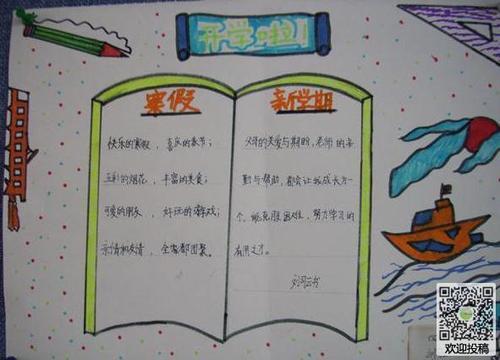 开学啦!
寒假
快乐的寒假，喜庆的春节；
五彩的烟花，丰富的美食；
可爱的朋友，好玩的游戏；
亲情和友情，全都都团聚。
新学期
父母的关爱与期盼，老师的辛
勤与帮助，都会让我成长为一
个，能克服困难，努力学习的
有用之才。
欢迎投稿